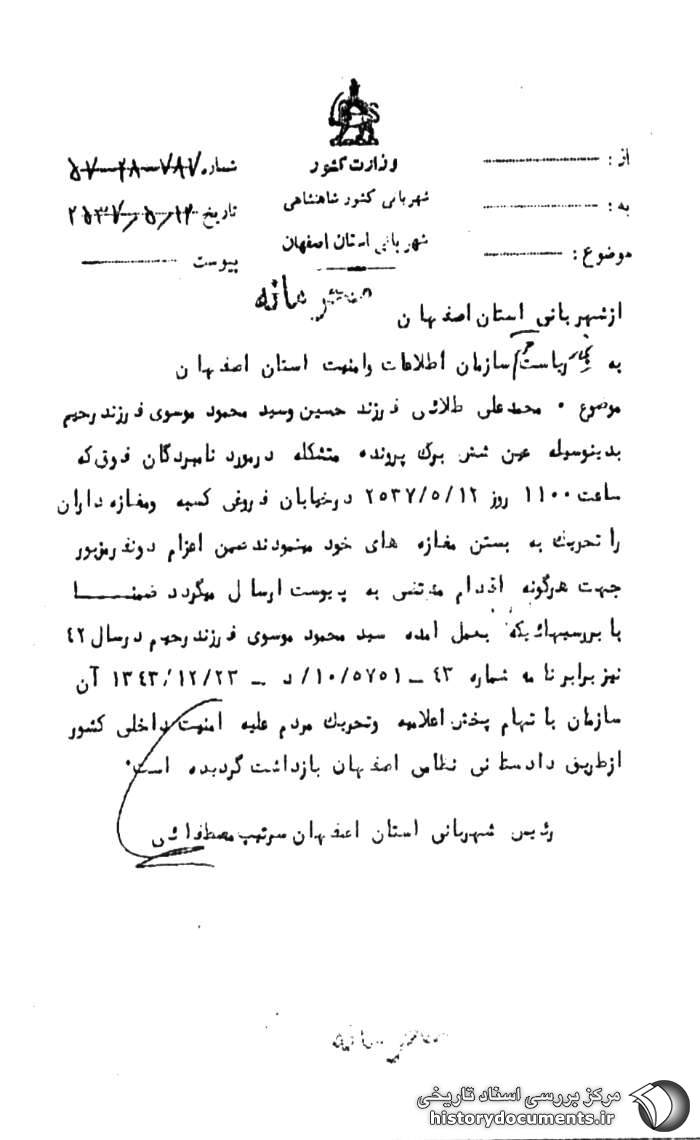 وزارت کشور
شهربانی کشور شاهنشاهی
شهربانی استان اصفهان
از :
به :
موضوع :
شماره ۷۸۷-۲۸-۵۷
تاریخ ۲۵۳۷/۵/۱۲
پیوست
محرمانه
از شهربانی استان اصفهان
به ریاست سازمان اطلاعات وامنیت استان اصفهان
موضوع ٠ محمدعلی طلائی فرزند حسین وسید محمود موسوی فرزند رحیم
بدینوسیله عین شش برگ پرونده متشکله درمورد نامبردگان فوق که
ساعت ۱۱۰۰ روز ۲۵۳۷/۵/۱۲ درخیابان فروغی کسبه ومغازه داران
را تحریک به بستن مغازه های خود مینمودند ضمن اعزام دونفر مزبور
جهت هرگونه اقدام مقتضی به پیوست ارسال میگردد ضمنــــا
با بررسیهائیکه بعمل آمده سید محمود موسوی فرزند رحیم درسال ۴۲
نیز برابر نامه شماره ۴۳ – ۱۰/۵۷۵۱/د – ۱۳۴۳/۱۲/۲۳ آن
سازمان باتهام پخش اعلامیه وتحریک مردم علیه امنیت داخلی کشور
ازطریق دادستانی نظامی اصفهان بازداشت گردیده است٠
رئیس شهربانی استان اصفهان سرتیپ مصطفائی
مرکز بررسی اسناد تاریخی
historydocuments.ir